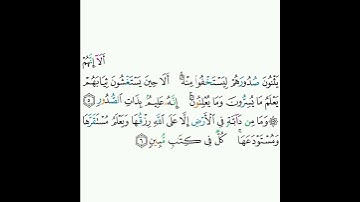 أَلَآ إِنَّهُمْ
يَثْنُونَ صُدُورَهُمْ لِيَسْتَخْفُوا۟ مِنْهُ ۚ أَلَا حِينَ يَسْتَغْشُونَ ثِيَابَهُمْ
يَعْلَمُ مَا يُسِرُّونَ وَمَا يُعْلِنُونَ ۚ إِنَّهُۥ عَلِيمٌۢ بِذَاتِ ٱلصُّدُورِ ٥
۞ وَمَا مِن دَآبَّةٍ فِى ٱلْأَرْضِ إِلَّا عَلَى ٱللَّهِ رِزْقُهَا وَيَعْلَمُ مُسْتَقَرَّهَا
وَمُسْتَوْدَعَهَا ۚ كُلٌّ فِى كِتَٰبٍ مُّبِينٍ ٦